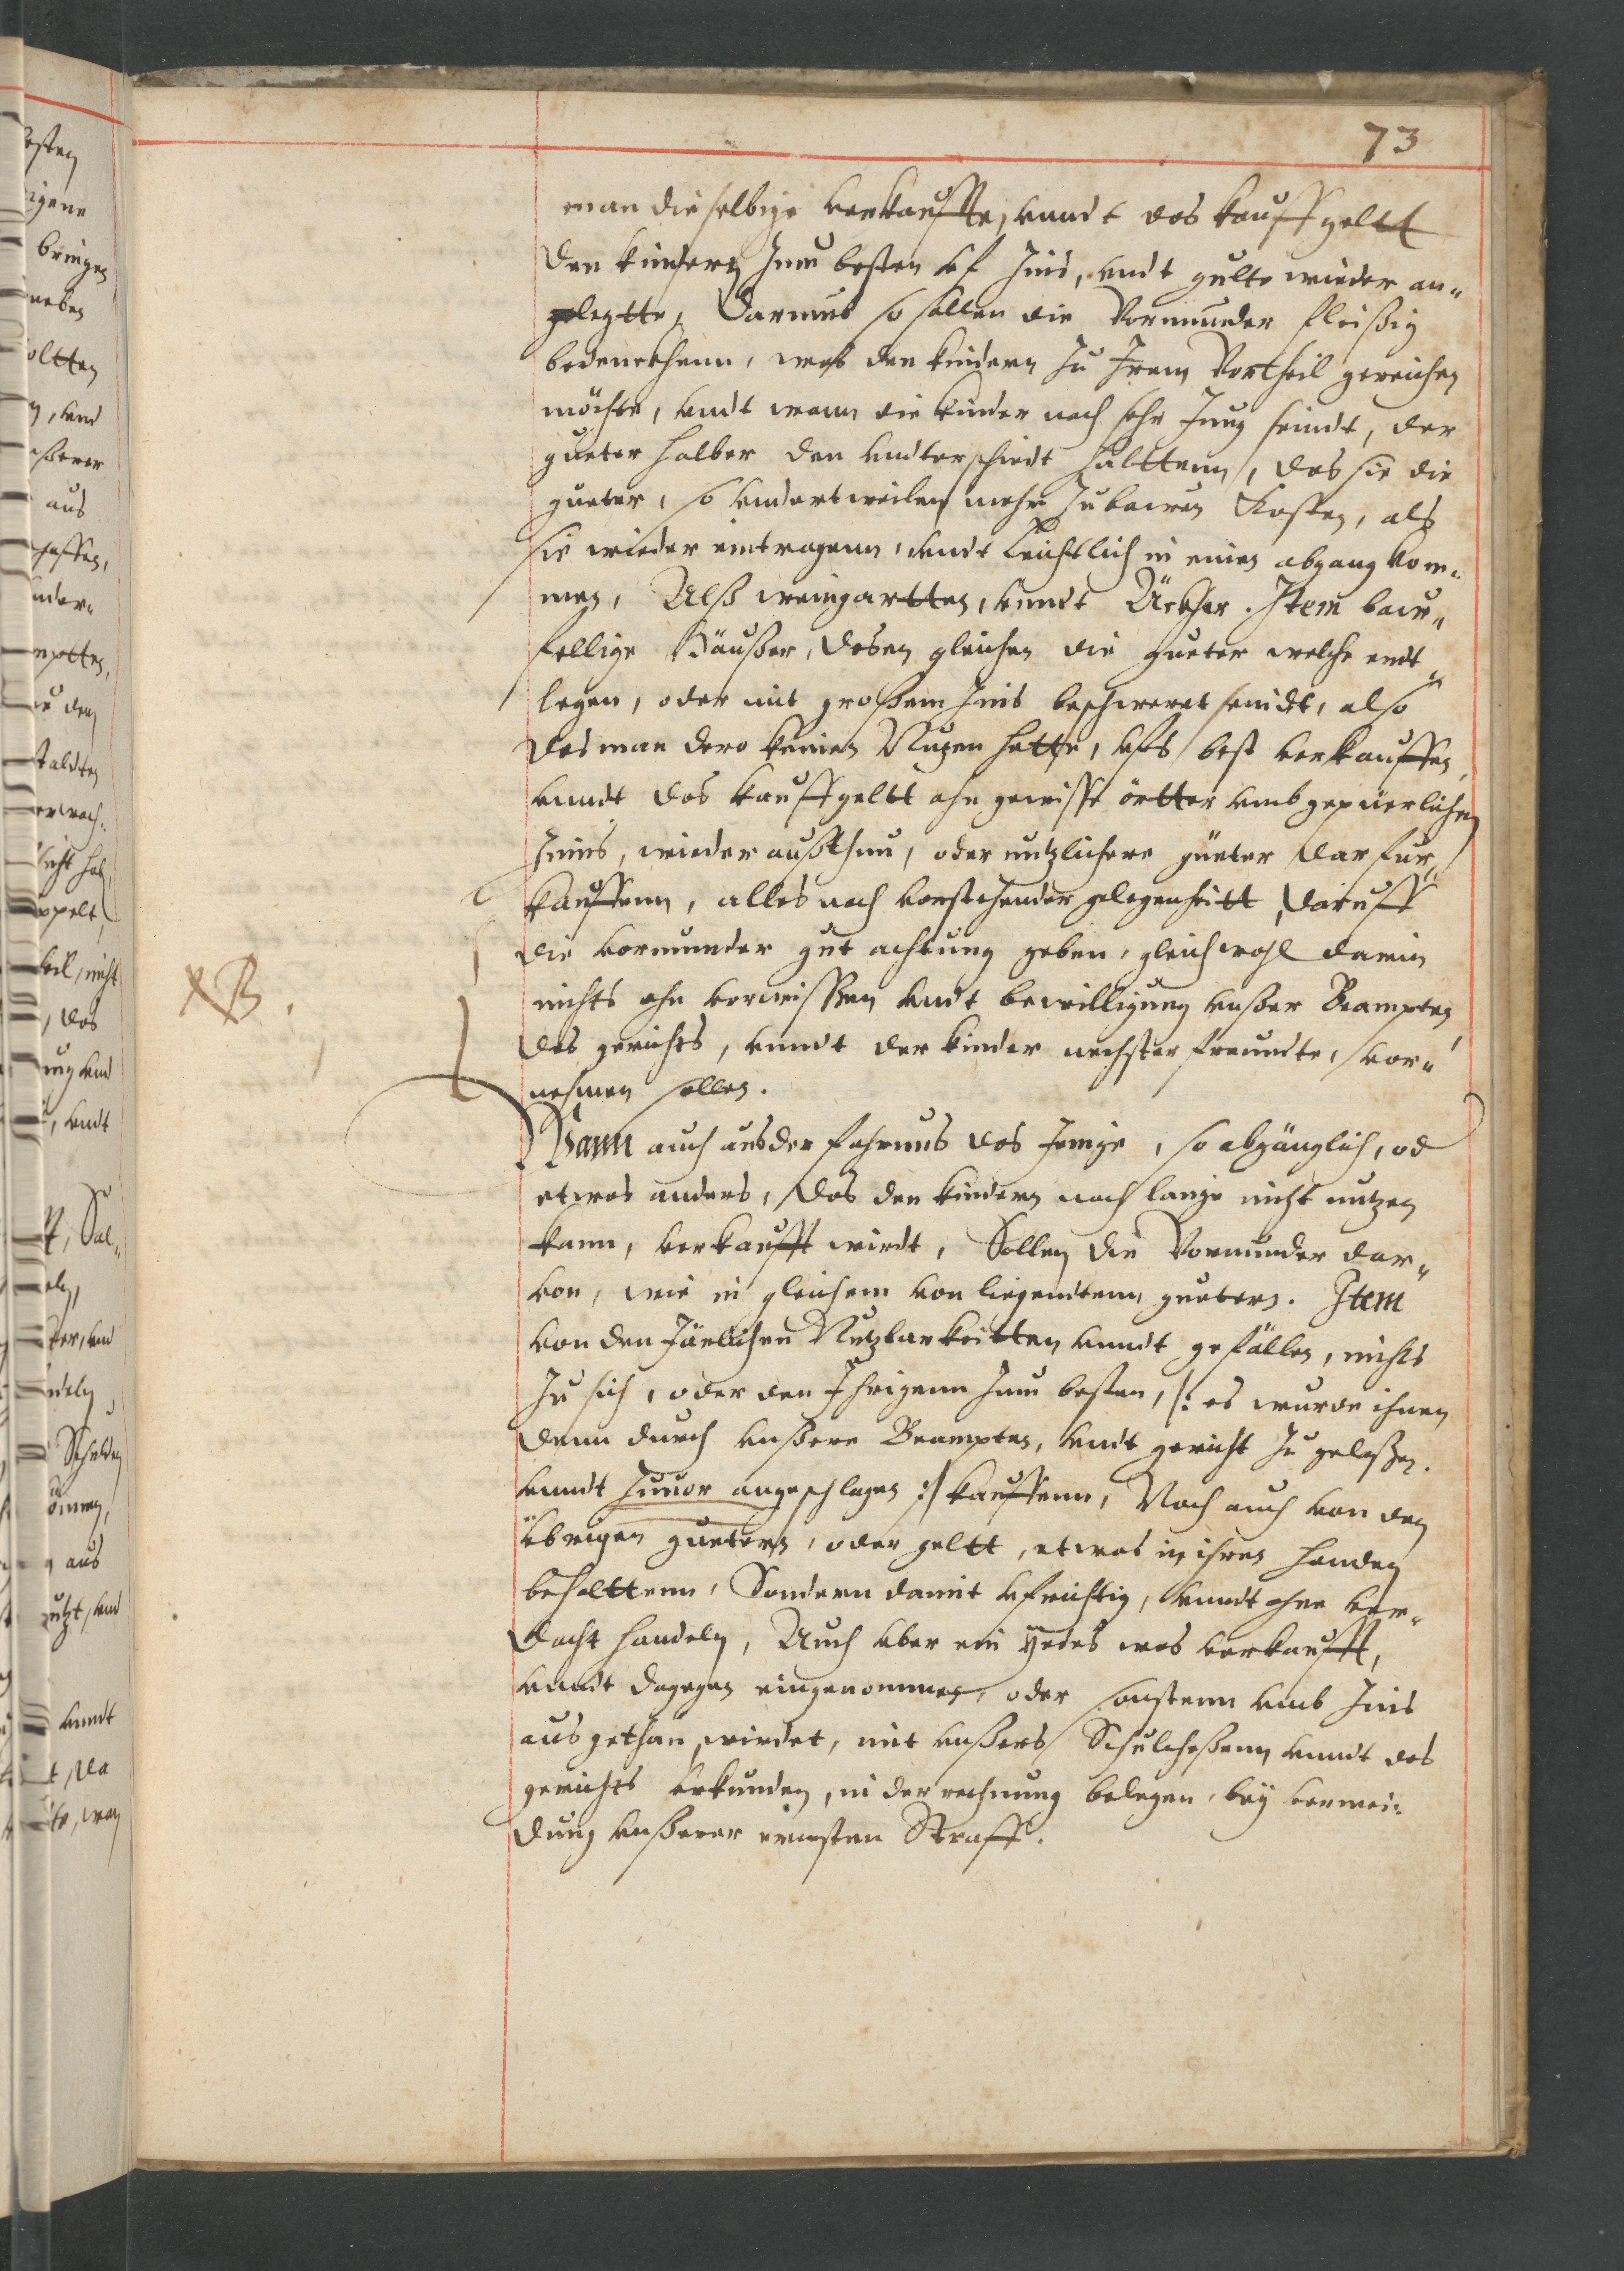 73
man dieselbige verkauffte, vnndt das kauffgeltt
den kindern zum besten vf zins, vndt gulte wieder an„
gelegtte, Darumb so sollen die Vormunder fleißig
bedenckhenn, waß den kindern zu Irem Vortheil gereichen
möchte, vndt wann die kinder noch sehr Jung seindt, der
gueter halber den vnderschiedt halttenn, das sie die
gueter, so vnderweilen mehr zu bawen Kosten, als
sie wieder eintragenn, vndt leichtlich in einen abgang kom„
men, Alß weingartten, vnndt Äckher. Item baw„
fellige Häußer, desen gleichen die gueter welche endt„
legen, oder mit großem zins beschweret seindt, also
das man dero keinen Nuzen hatte, vfs best verkauffen,
vnndt das kauffgeltt ahn gewisse örtter vmb gepüerlichen
zinns, wieder außthun, oder nutzlichere güeter darfur
kauffenn, alles nach vorstehender gelegenheitt, daruff
die vormunder gut achtung geben, gleichwohl darin
nichts ohn vorwissen vndt bewilligung vnßer Beampten
des gerichts, vnndt der kinder nechster freundte, vor„
nehmen sollen.
NB.
Wann auch aus der fahrnus das Jenige, so abgänglich, od
etwas anders, das den kindern noch lange nicht nutzen
kann, verkaufft wirdt, Sollen die Vormunder dar„
von, wie in gleichem von liegendtenn guetern. Item
von den Järlichen Nutzbarkeitten vnndt gefällen, nichts
zu sich, oder den Ihrigenn zum besten, /: es wurde ihnen
dann durch vnßere Beampten, vndt gericht zu gelaßen.
vnndt zuuor angeschlagen :/ kauffenn, Noch auch von den
vbrigen guetern, oder geltt, etwas in ihren handen
behalttenn, Sondern damit vfrichtig, vnndt ohne ver„
dacht handeln, Auch vber ein yedes was verkaufft,
vnndt dagegen eingenommen, oder sonstenn vmb zins
ausgethan wirdet, mit vnßers Schultheßenn vnndt des
gerichts vrkunden, in der rechnung belegen, bey vermei„
dung vnßerer ernsten Straff.